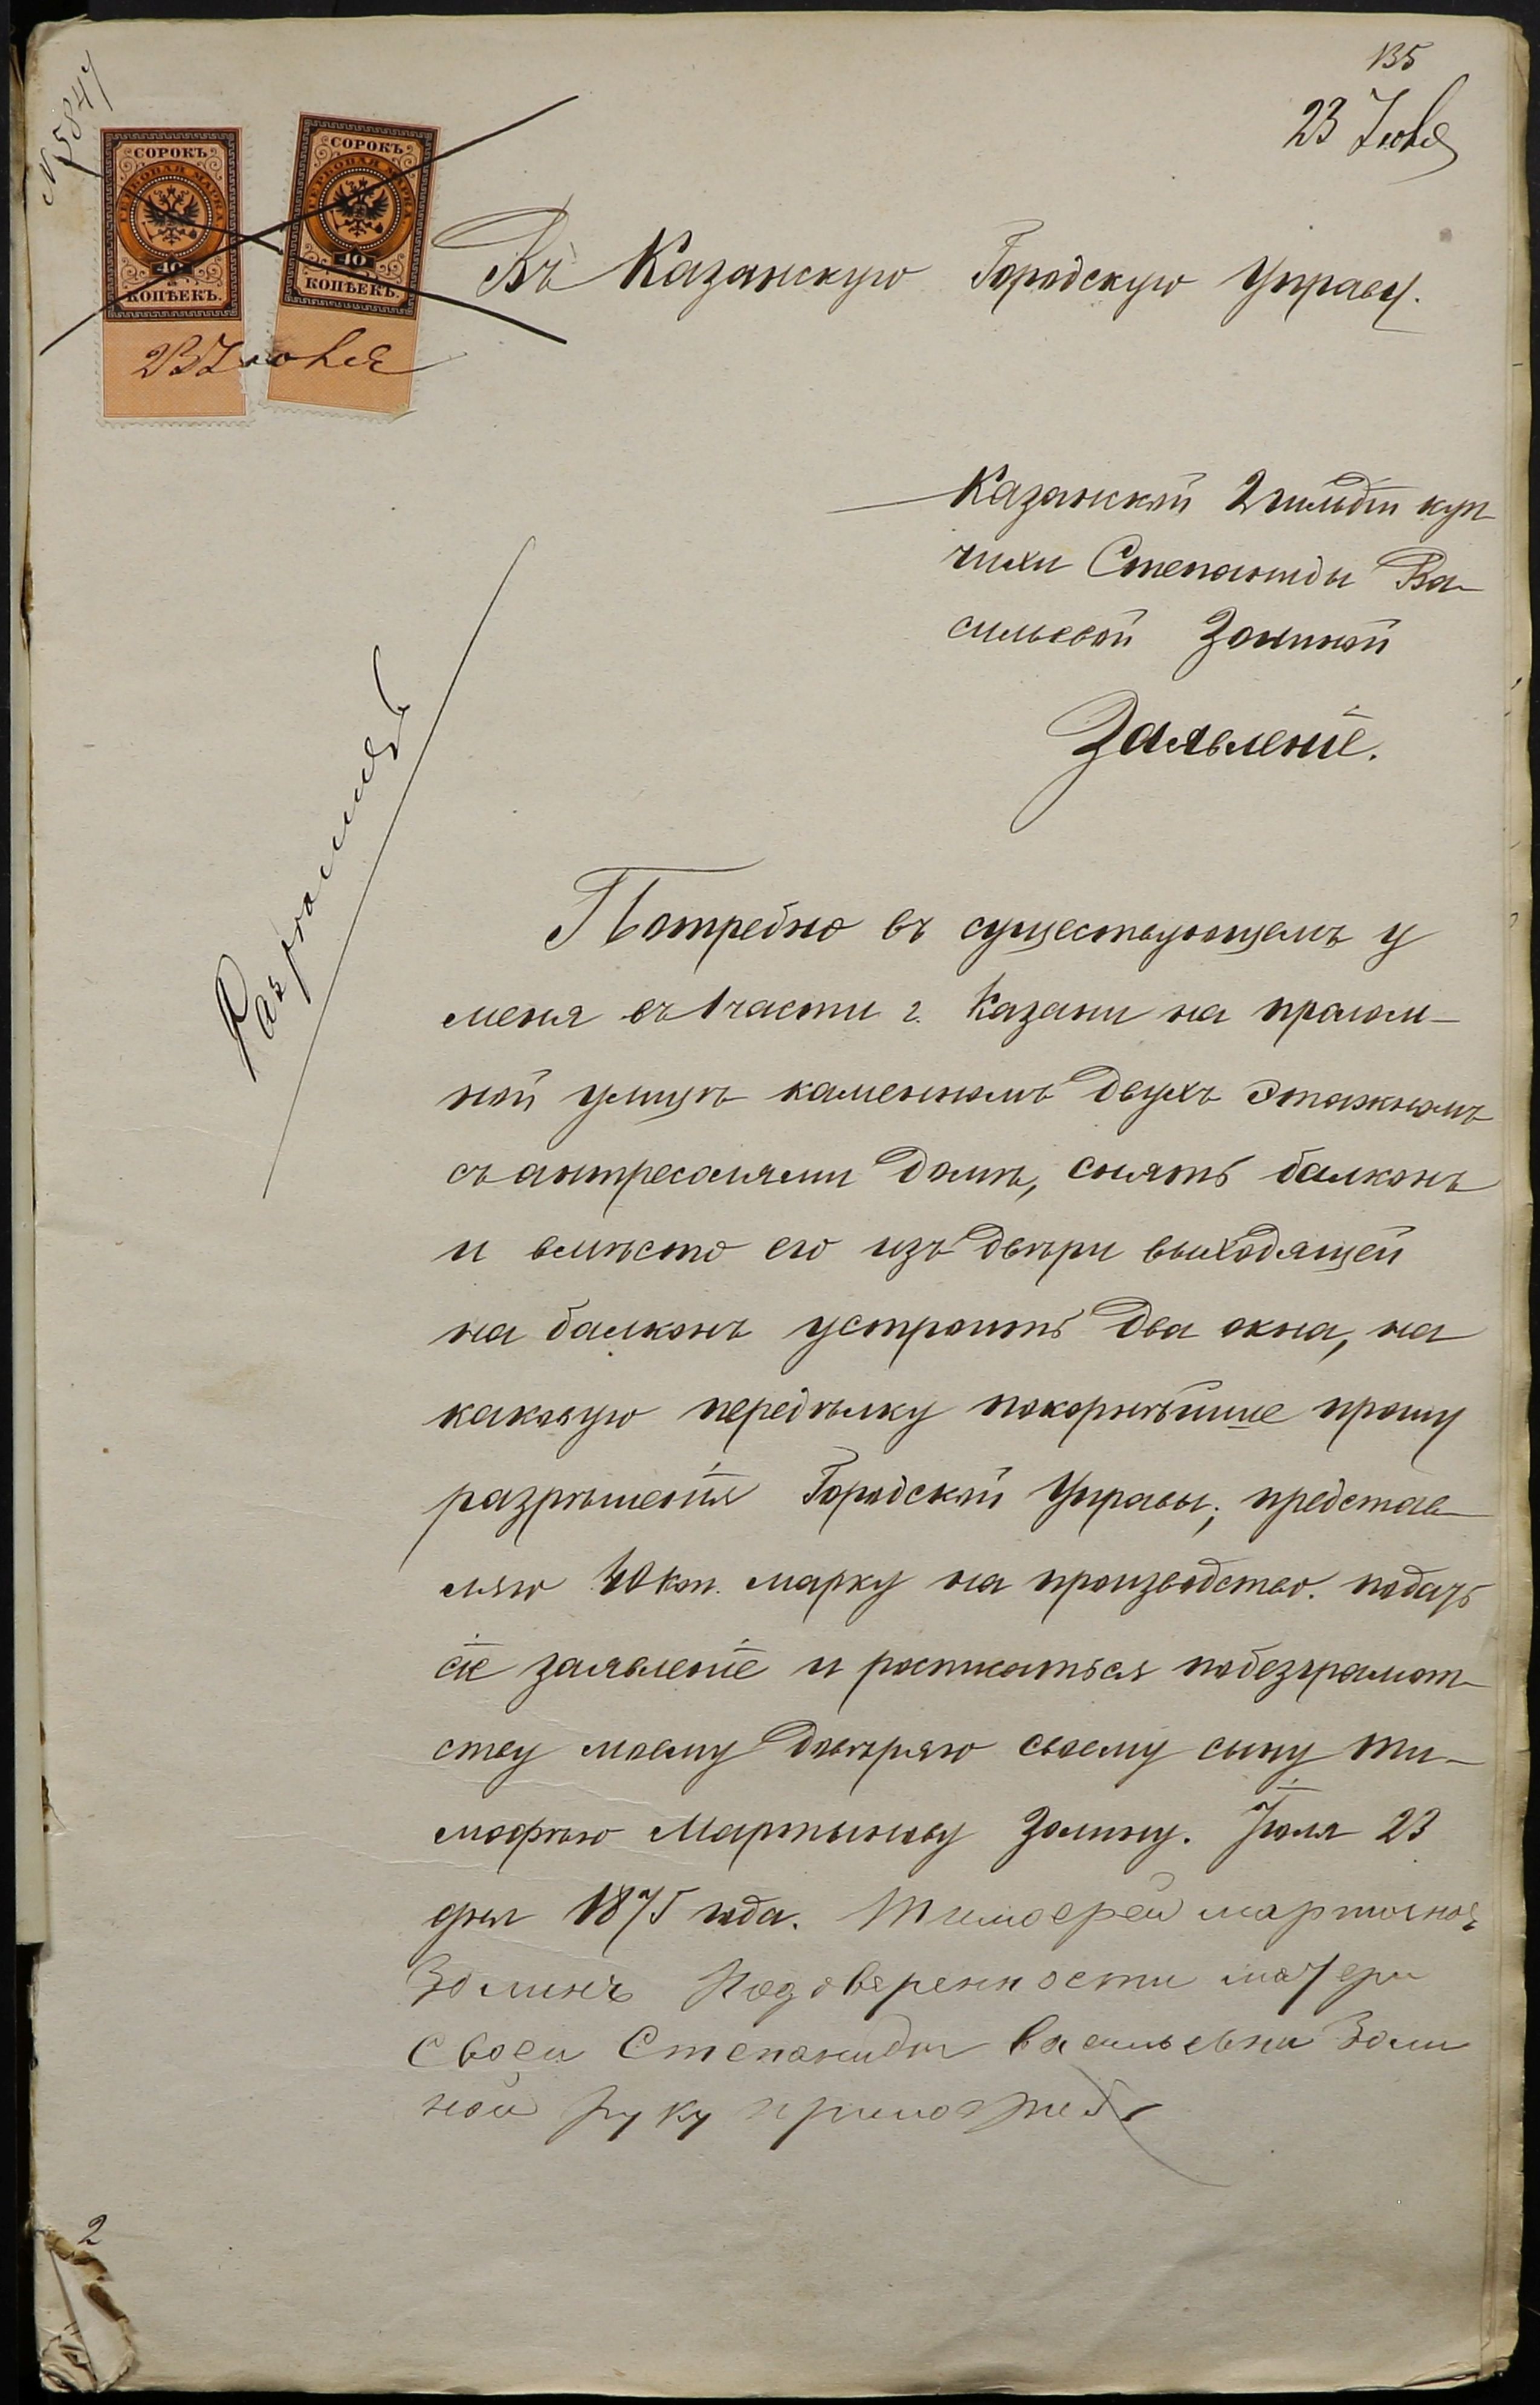 135
23 Іюля
№ 5847
СОРОКЪ
ГЕРБОВАЯ МАРКА
40
КОПѢЕКЪ.
СОРОКЪ
ГЕРБОВАЯ МАРКА
40
КОПѢЕКЪ.
23 Іюля
Въ Казанскую Городскую Управу.
Казанской 2 гильдіи куп
чихи Степаниды Ва-
сильевой Золиной
Заявленіе.
Потребно въ существующемъ у
меня въ 1 части г. Казани на пролом-
ной улицѣ каменномъ двухъ этажномъ
съ антресолями домѣ, снять балконъ
и вмѣсто его изъ двѣри выходящей
на балконъ устроить два окна, на
каковую передѣлку покорнѣйше прошу
разрѣшенія Городской Управы; представ-
ляю 40 коп. марку на производство. подать
сіе заявленіе и росписаться побезграмот-
ству моему довѣряю своему сыну Ти-
мофѣю Мартынову Золину. Іюля 23
дня 1875 года. Тимофей мартынов
Золинъ подоверенности матери
своей Степаниды васильевны Золи
ной руку приложилъ
2